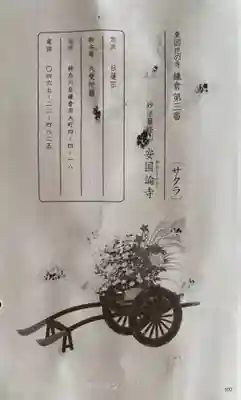 東国花の寺 鎌倉第三番
(サクラ)
妙法華経山 安国論寺
宗派 日蓮宗
御本尊 久遠釈迦
住所 神奈川県鎌倉市大町四-四-一八
電話 〇四六七-二二-四八二五